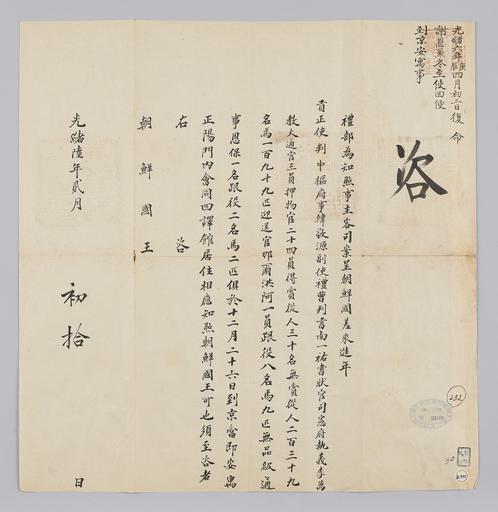 光緒六年庚辰四月初二日復 命
謝恩兼冬至使回便
到京安寓事
咨
禮部為知照事主客司案呈朝鮮國差來進年
貢正使判中樞府事韓敬源副使禮曹判書南一祐書狀官司憲府執義李萬
教大通官三員押物官二十四員得賞從人三十名無賞從人二百三十九
名馬一百九十九匹迎送官耶爾洪阿一員跟役八名馬九匹無品級通
事恩保一名跟役二名馬二匹俱於十二月二十六日到京當即安寓
正陽門內會同四譯館居住相應知照朝鮮國王可也須至咨者
右 咨
朝鮮國王
光緒陸年貳月 初拾 日
232